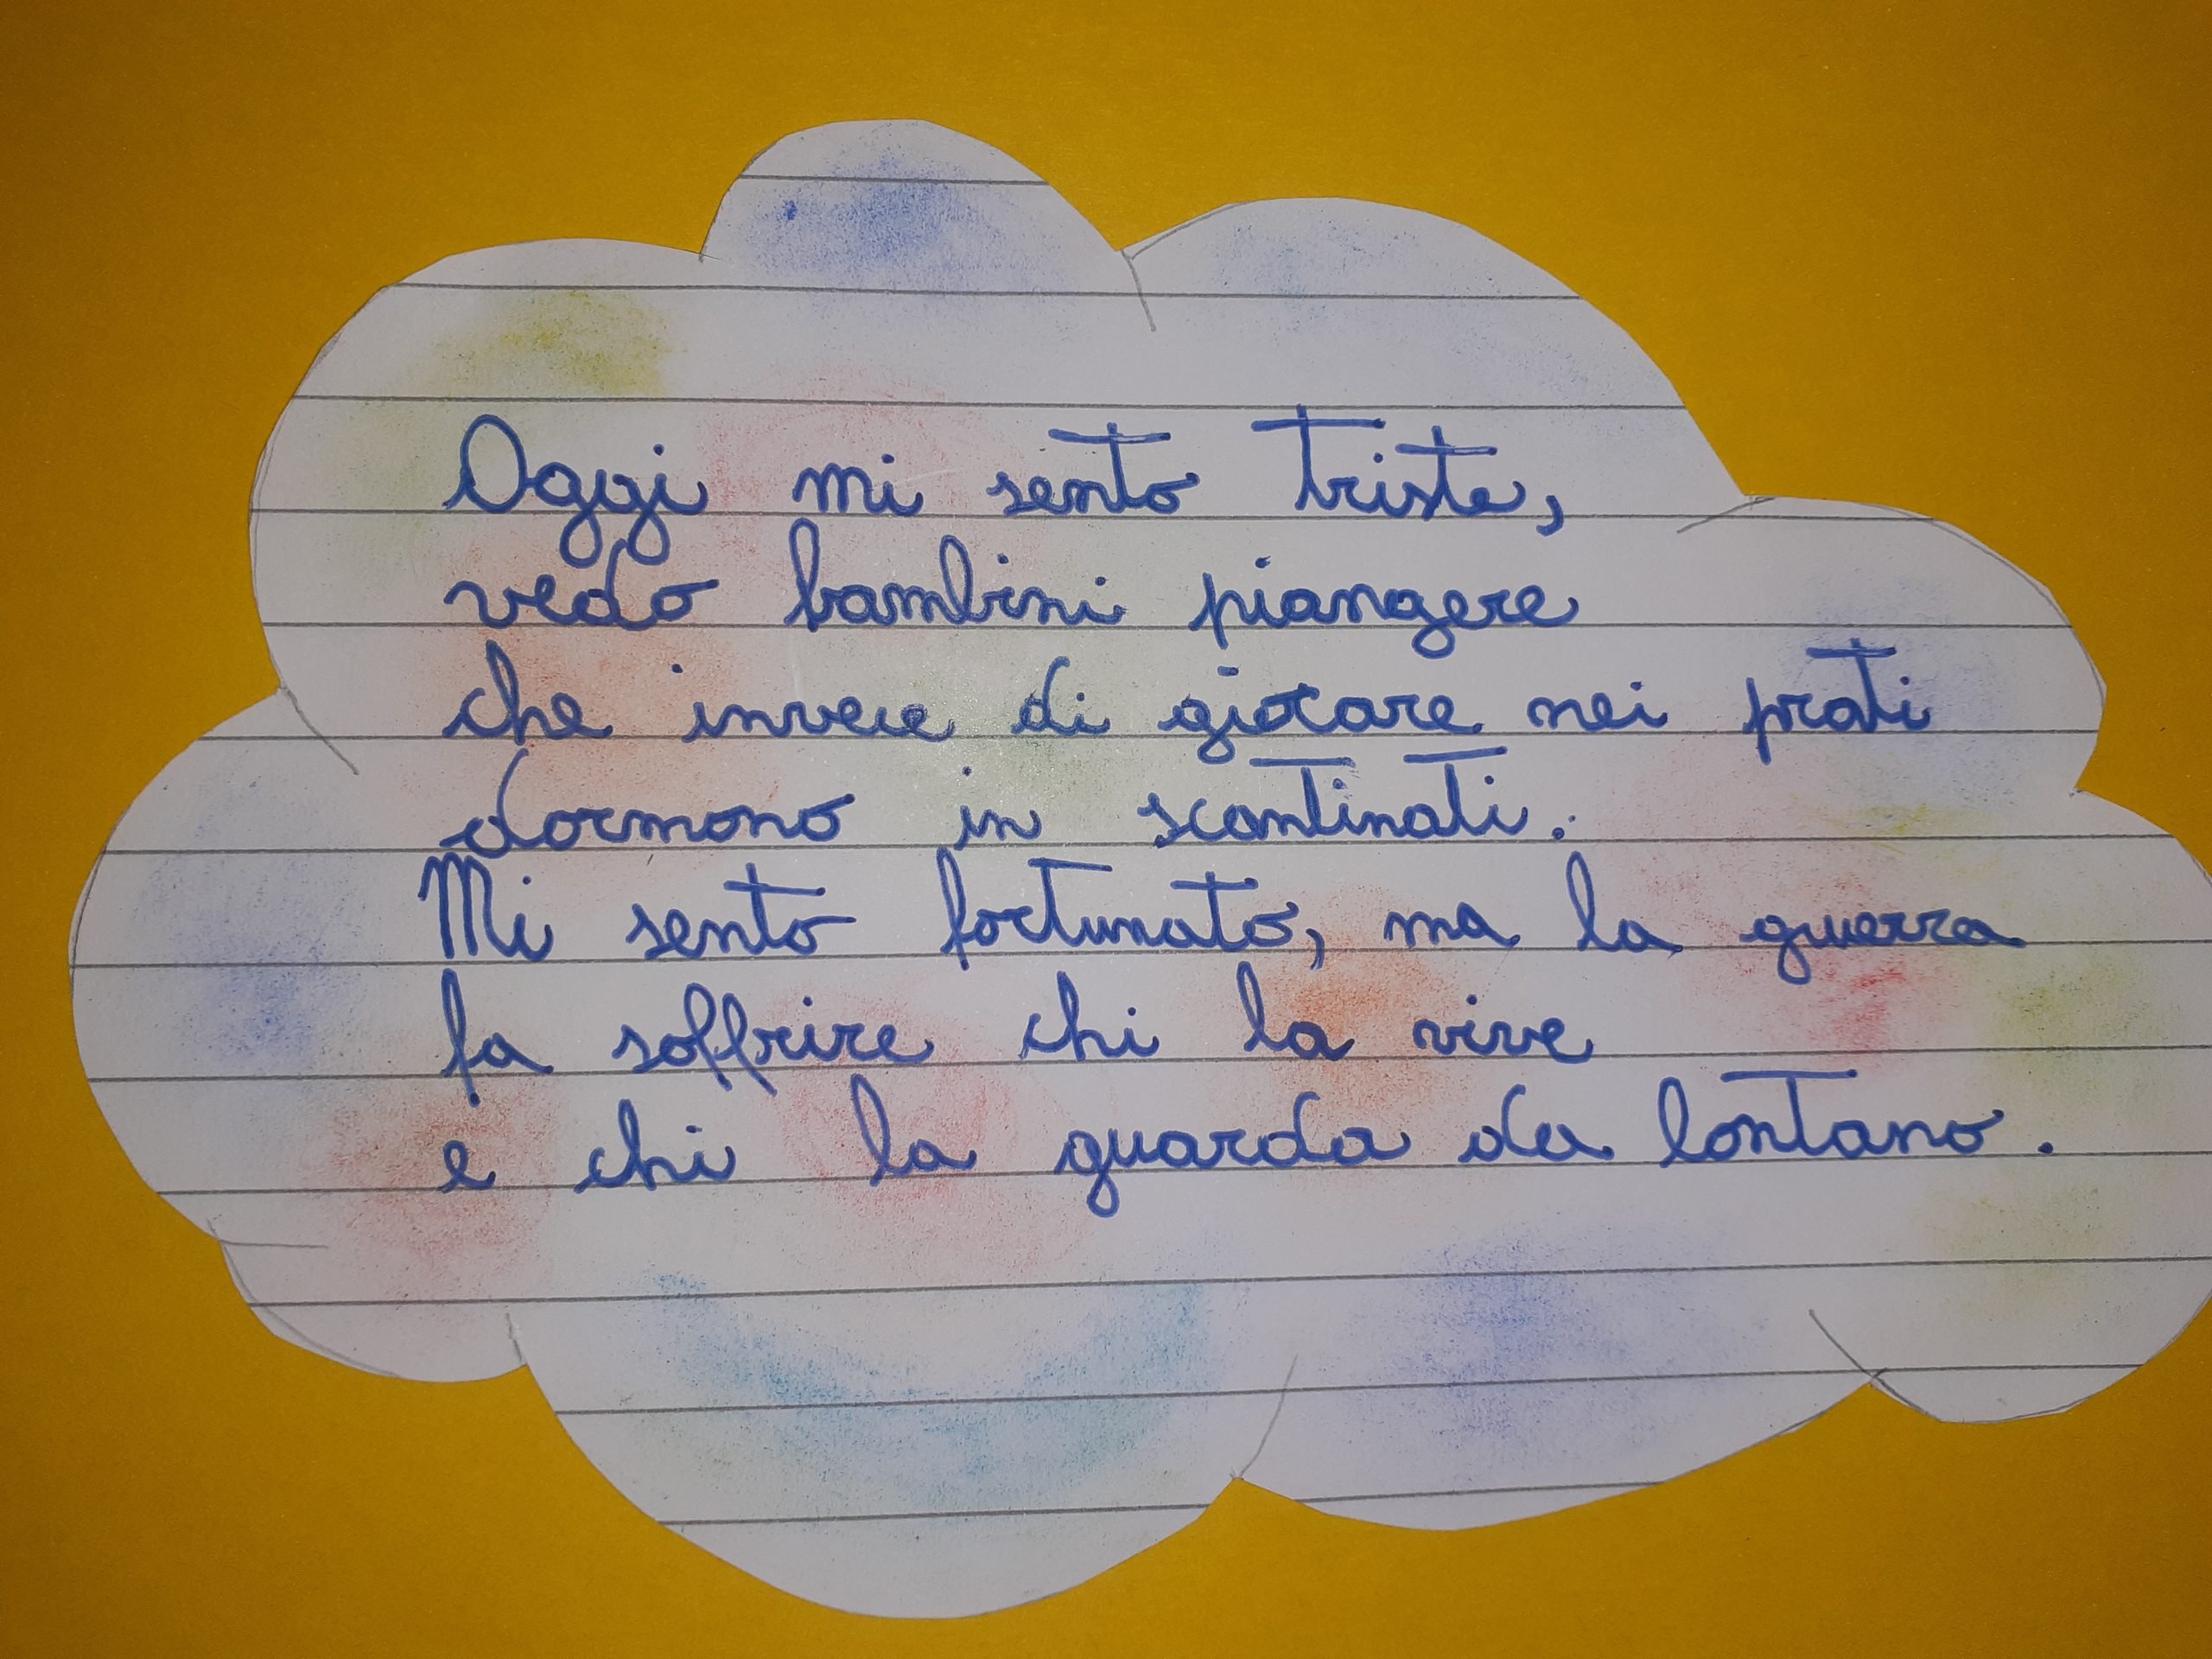 Oggi mi sento triste,
vedo bambini piangere
che invece di giocare nei prati
dormono in scantinati.
Mi sento fortunato, ma la guerra
fa soffrire chi la vive
e chi la guarda da lontano.